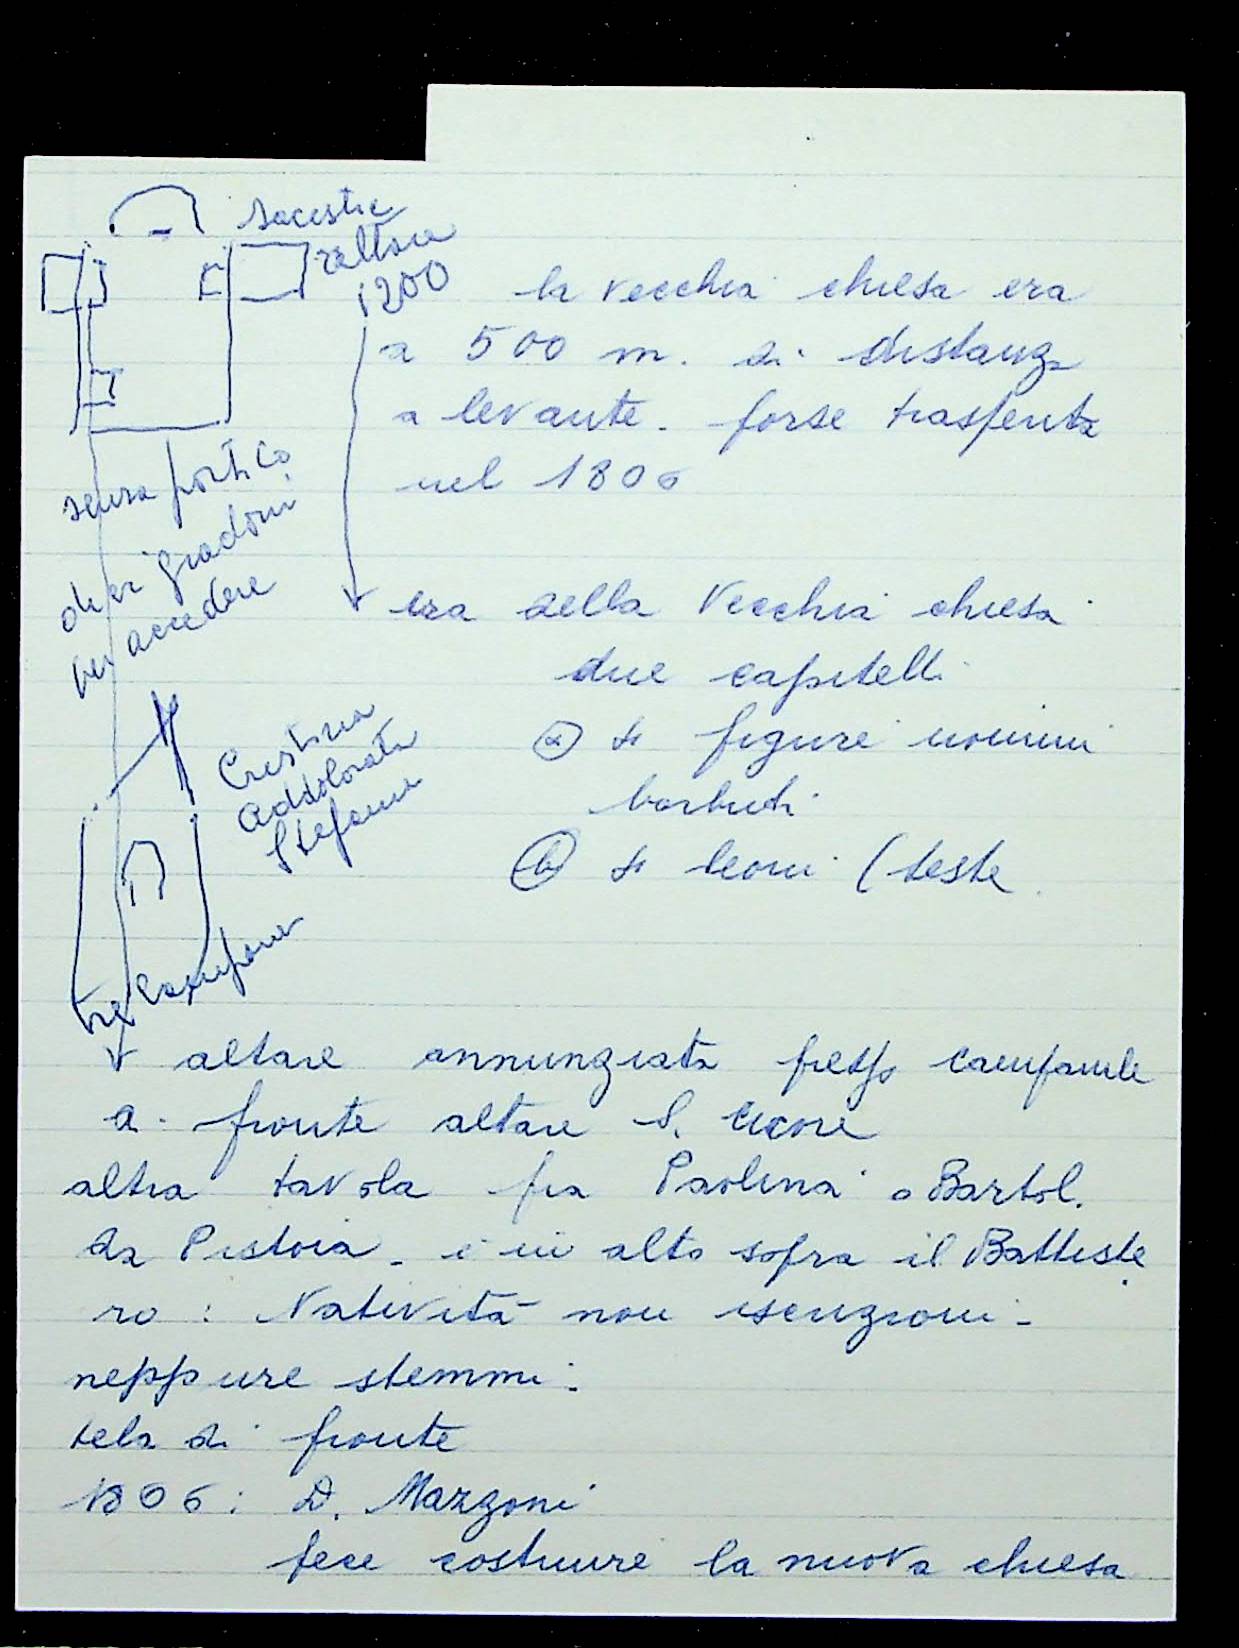 sacestie
rettore
1200
la vecchia chiesa era
a 500 m. di distanza
a levante. forse trasferita
nel 1806
senza portico
dieci gradoni
per accedere
era della vecchia chiesa
due capitelli
a 4 figure uomini
barbuti
b 4 leoni (teste
Cristina
Addolorata
Stefania
tre campane
altare annunziata presso campanile
a fronte altare S. Cuore
altra tavola fra Paolina o Bartol.
da Pistoia - è in alto sopra il Battiste
ro : Natività non iscrizioni -
neppure stemmi.
tela di fronte
1806: D. Mazzoni
fece costruire la nuova chiesa